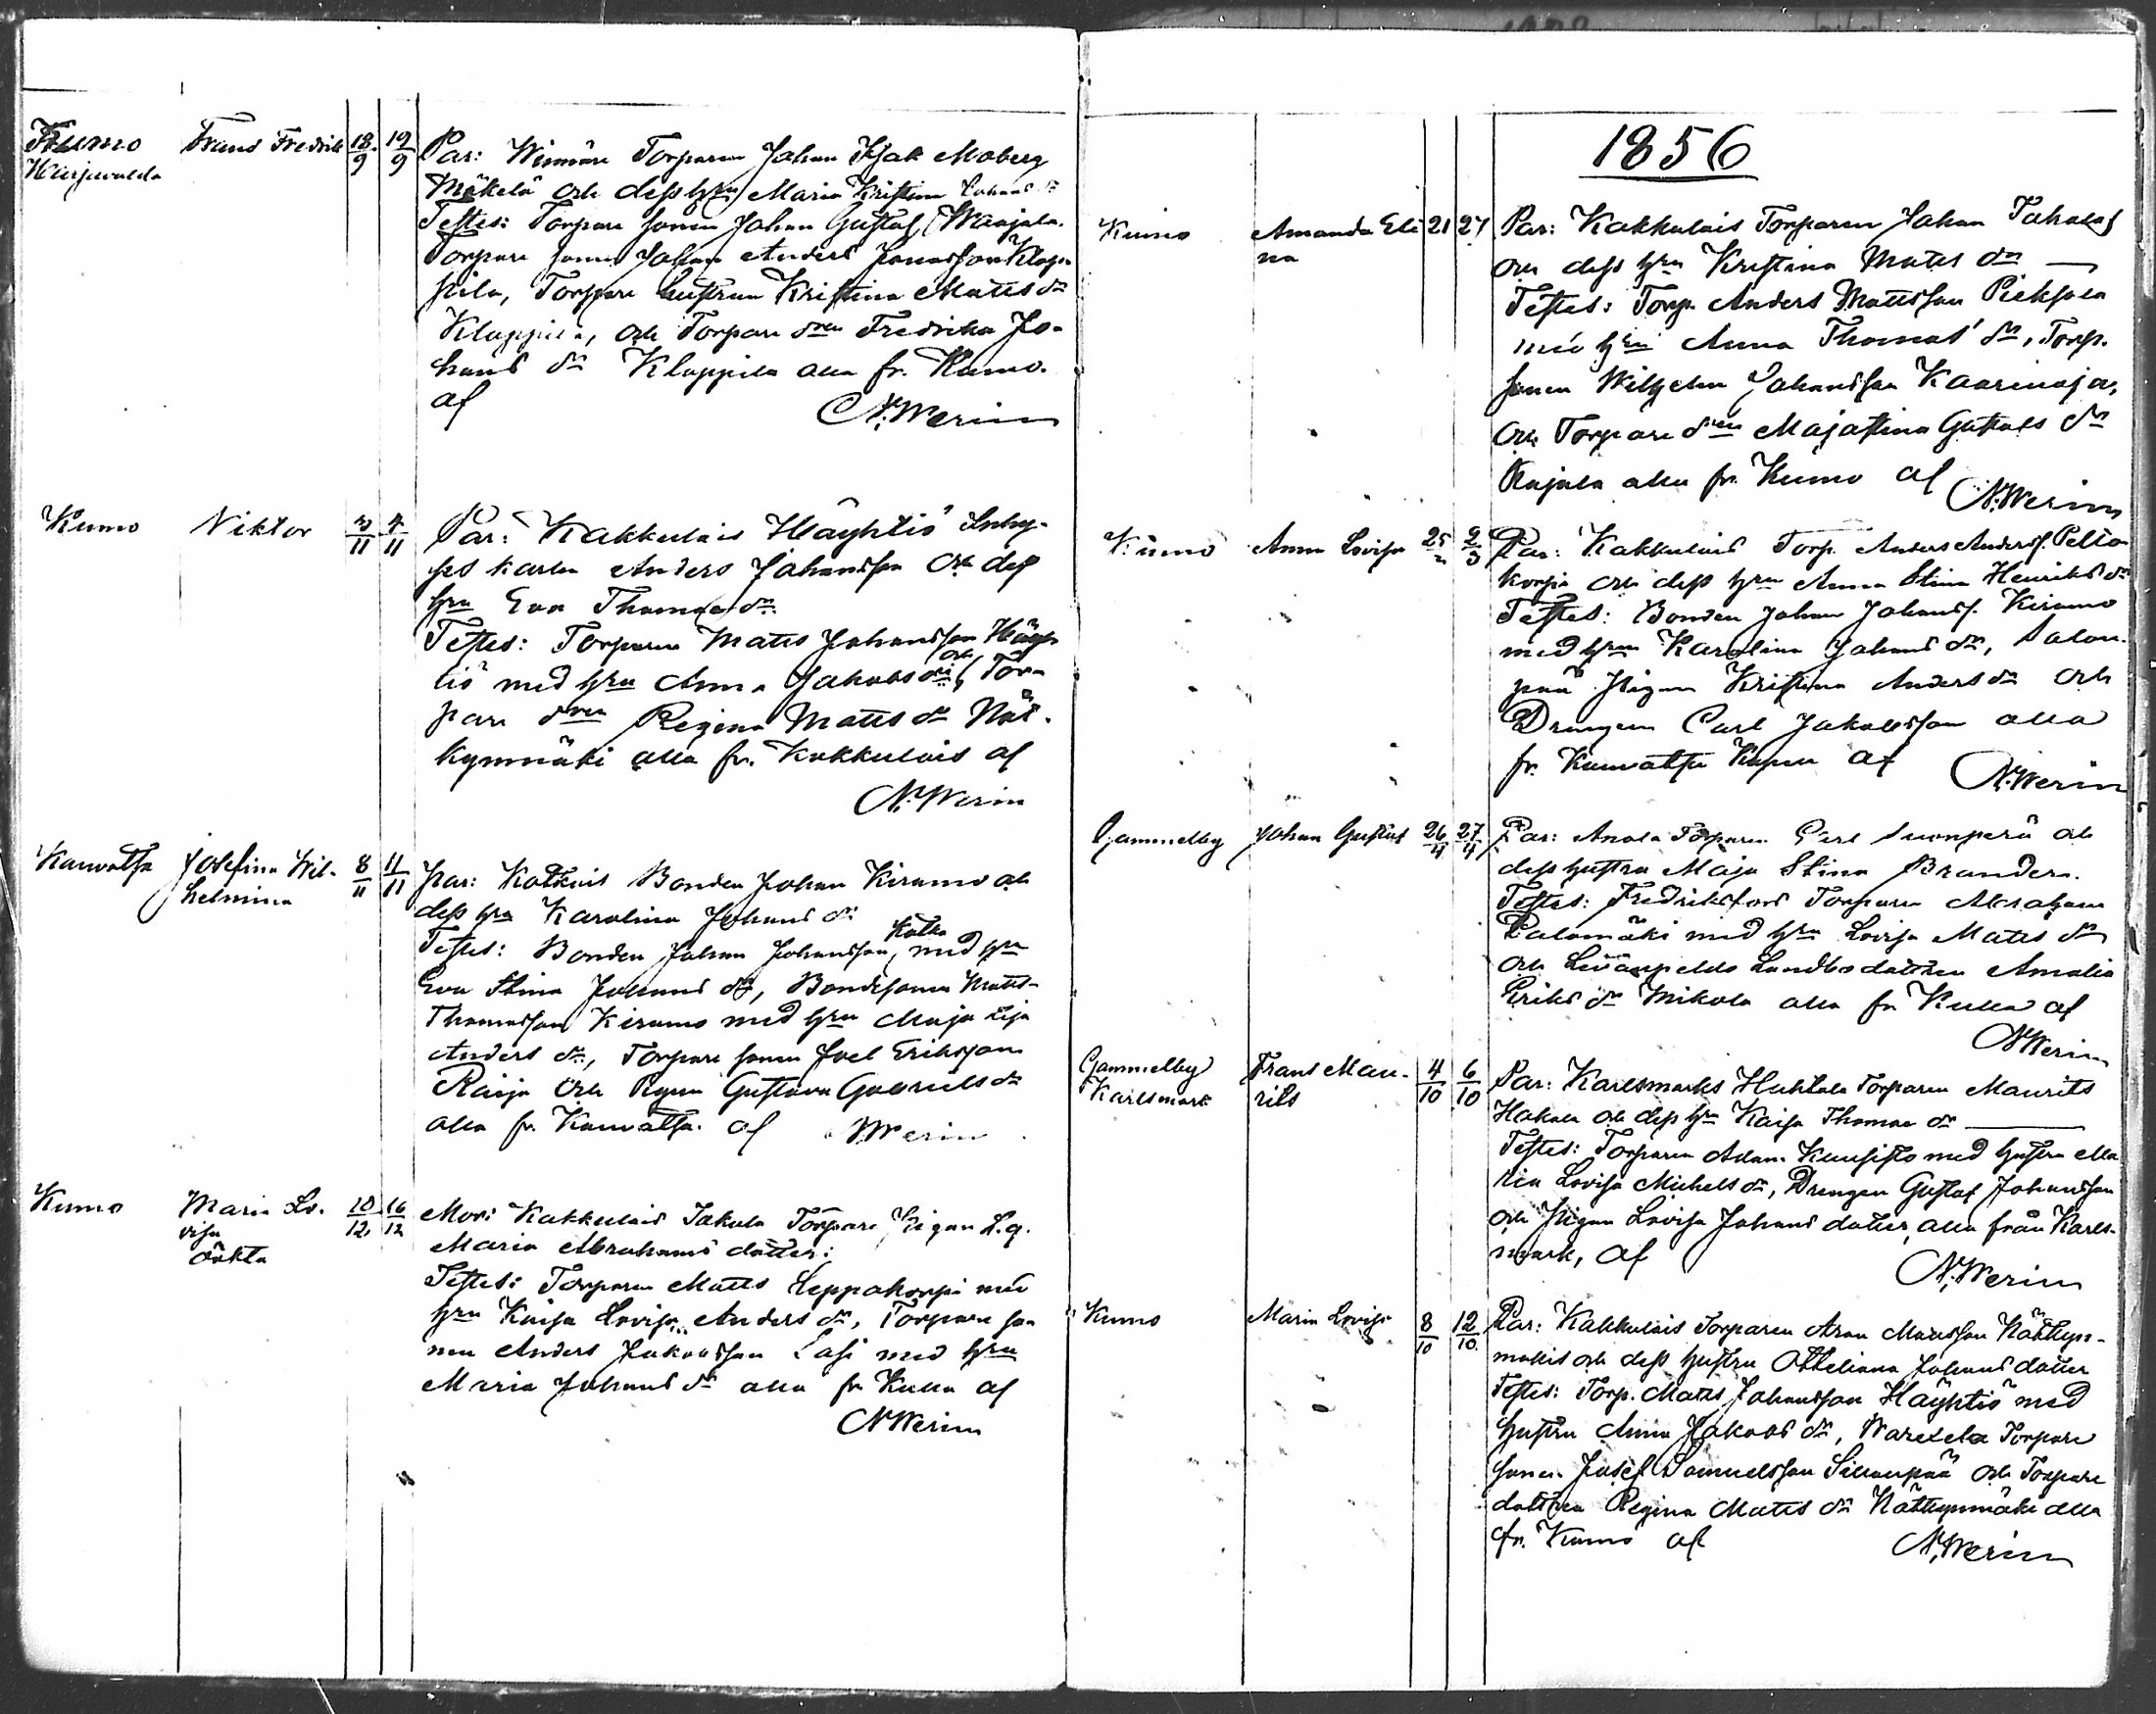 Kumo
Harjavalda
Frans Fredrik
18/9 19/9
Par: Torparen Johan Isak Moberg
Mäkelä och dess hru Maria Kristina Johans dr
Testes: Torpare sonen Johan Gustaf
Torpare sonen Johan Anders Jonasson Klop-
pila, Torpare hustrun Kristina Matts dr
Kloppila, och Torpare dren Fredrika Jo-
hans dr Kloppila alla fr. Kumo.
af
N. Werin
Kumo
Viktor
3/11 4/11
Par: Kakkulais Häyhtiö Inhy-
ses karlen Anders Johansson och dess
hru Eva Thomae dr
Testes: Torparen Matts Johansson Häyh-
tiö med hru Anna Jakobs dr och Tor-
pare dren Regina Matts dr Nät-
kynmäki alla fr. Kakkulais af
N. Werin
Kauvatsa
Josefina Wil-
helmina
8/11 11/11
Par: Katkais Bonden Johan Kiramo och
dess hru Karolina Johans dr
Testes: Bonden Johan Johansson Katka med hru
Eva Stina Johans dr, Bondesonen Matts
Thomasson Kiramo med hru Maja Lisa
Anders dr, Torpare sonen Joel Eriksson
Raija och Pigan Gustava Gabriels dr
alla fr. Kauvatsa af N Werin
Kumo
Maria Lo-
visa
oäkta
10/12 16/12
Mor: Kakkulais Jakola Torpare Pigan L.q.
Maria Abrahams dotter:
Testes: Torparen Matts Leppäkorpi med
hru Kaisa Lovisa Anders dr, Torpare so-
nen Anders Jakobsson Lasi med hru
Maria Johans dr alla fr Kulla af
N Werin
1856
Kumo
Amanda Eli
na
21 27
Par: Kakkulais Torparen Johan
och dess hru Kristina Matts dr
Testes: Torp. Anders Mattsson
med hru Anna Thomas dr, Torp.
sonen Wilhelm Johansson Kaarinoja,
och Torpare dren Majastina Gustafs dr
Rajala alla fr. Kumo af
N. Werin
Kumo
Anna Lovisa
25/2 2/3
Par: Kakkulais Torp. Anders Anderss. Pelto-
korpi och dess hru Anna Stina Henriks dr
Testes: Bonden Johan Johanss. Kiramo
med hru Karolina Johans dr, Salon-
pää Pigan Kristina Anders dr och
Drengen Carl Jakobsson alla
fr. Kauvatsa af
N. Werin
Gammelby
Johan Gustaf
26/4 27/4
Par: Anola Torparen Carl Suonperä och
dess hustru Maja Stina Brander.
Testes: Fredriksfors Torparen Abraham
Palomäki med hru Lovisa Matts dr
och Levänpeldo Landbodottren Amalia
Eriks dr Mikola alla fr Kulla af
N Werin
Gammelby
Karlsmark
Frans Mau-
rits
4/10 6/10
Par: Karlsmarks Huhtala Torparen Maurits
Hakala och dess hru Kaisa Thomae dr
Testes: Torparen Adam Kuusisto med hustru Ma
ria Lovisa Michels dr, Drengen Gustaf Johansson
och Pigan Lovisa Johans dotter, alla från Karls-
mark, af
N. Werin
Kumo
Maria Lovisa
8/10 12/10
Par: Kakkulais Torparen Aron Mattsson Nätkyn-
mäkis och dess hustru Otteliana Johans dotter
Testes: Torp. Matts Johansson Häyhtiö med
hustru Anna Jakobs dr, Torpare
sonen Josef Samuelsson Sillanpää och Torpare
dottren Regina Matts dr Nätkynmäki alla
fr. Kumo af
N. Werin